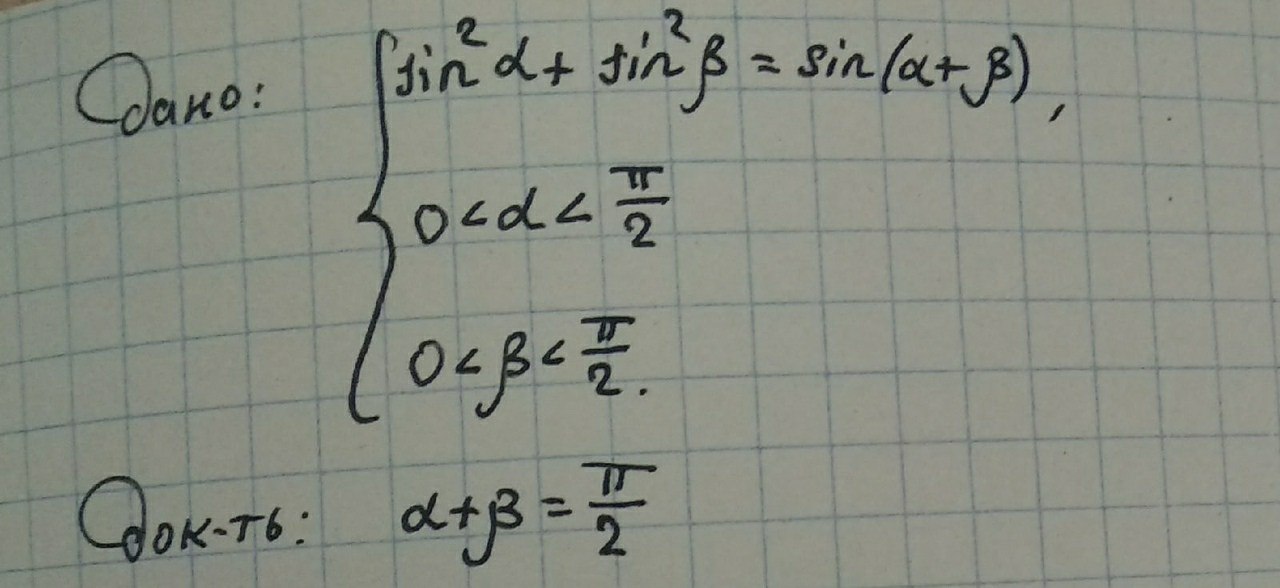 Дано: { sin² α + sin² β = sin(α + β),
0 < α < π/2
0 < β < π/2.
Док-ть: α + β = π/2